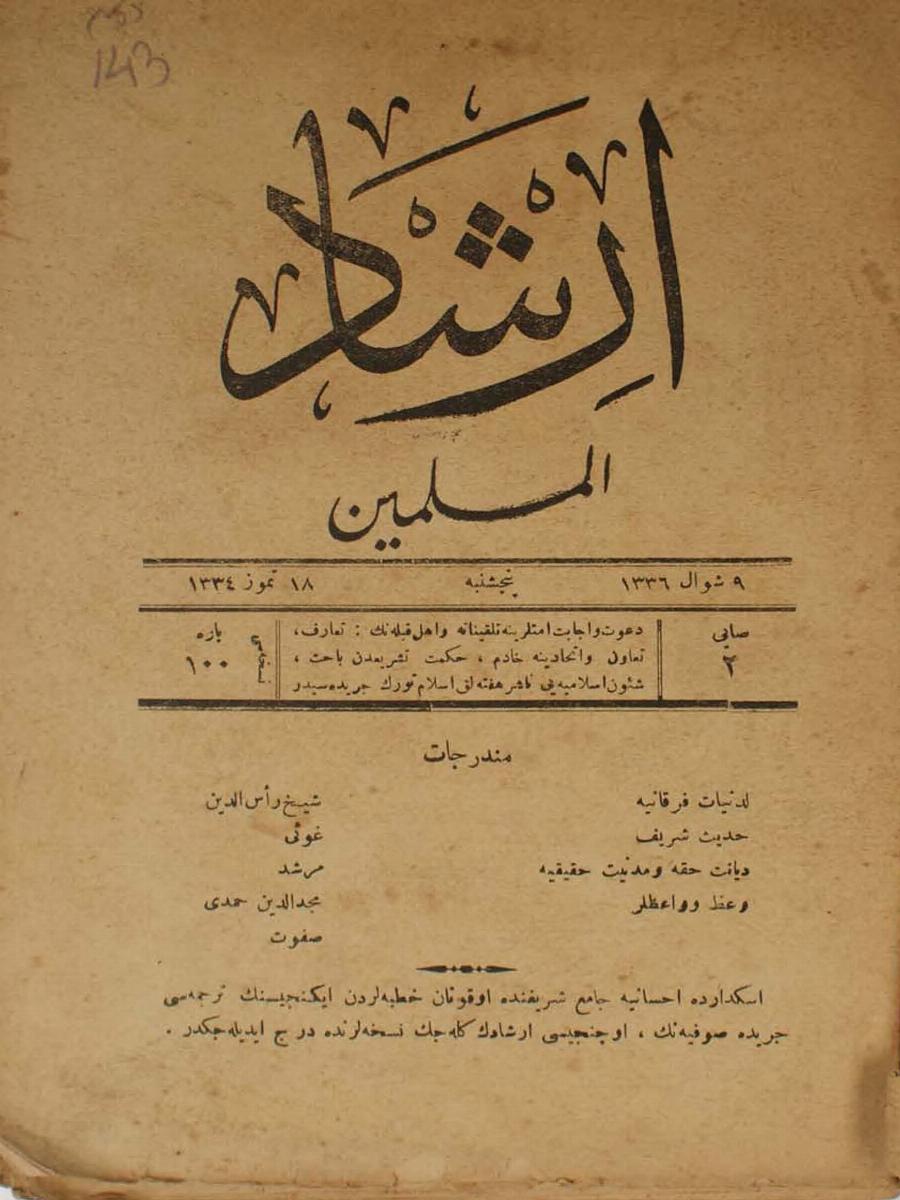 143
ارشاد
المسلمين
٩ شوال ١٣٣٦ پنجشنبه ١٨ تموز ١٣٣٤
صايى
٢
دعوت و اجابت امتلرينه تلقيناته و اهل قبله نك : تعارف،
تعاون و اتحادينه خادم ، حكمت تشريعدن باحث ،
شئون اسلاميه يى ناشر هفته لق اسلام تورك جريده سيدر
نسخه سى
پاره
١٠٠
مندرجات
لدنيات فرقانيه شيخ رأس الدين
حديث شريف غوثى
ديانت حقه و مدنيت حقيقيه مرشد
وعظ و واعظلر مجدالدين حمدى
صفوت
اسكدارده احسانيه جامع شريفنده اوقونان خطبه لردن ايكنجيسنك ترجمه سى
جريده صوفيه نك ، اوچنجيسى ارشادك كله جك نسخه لرنده درج ايديله جكدر .